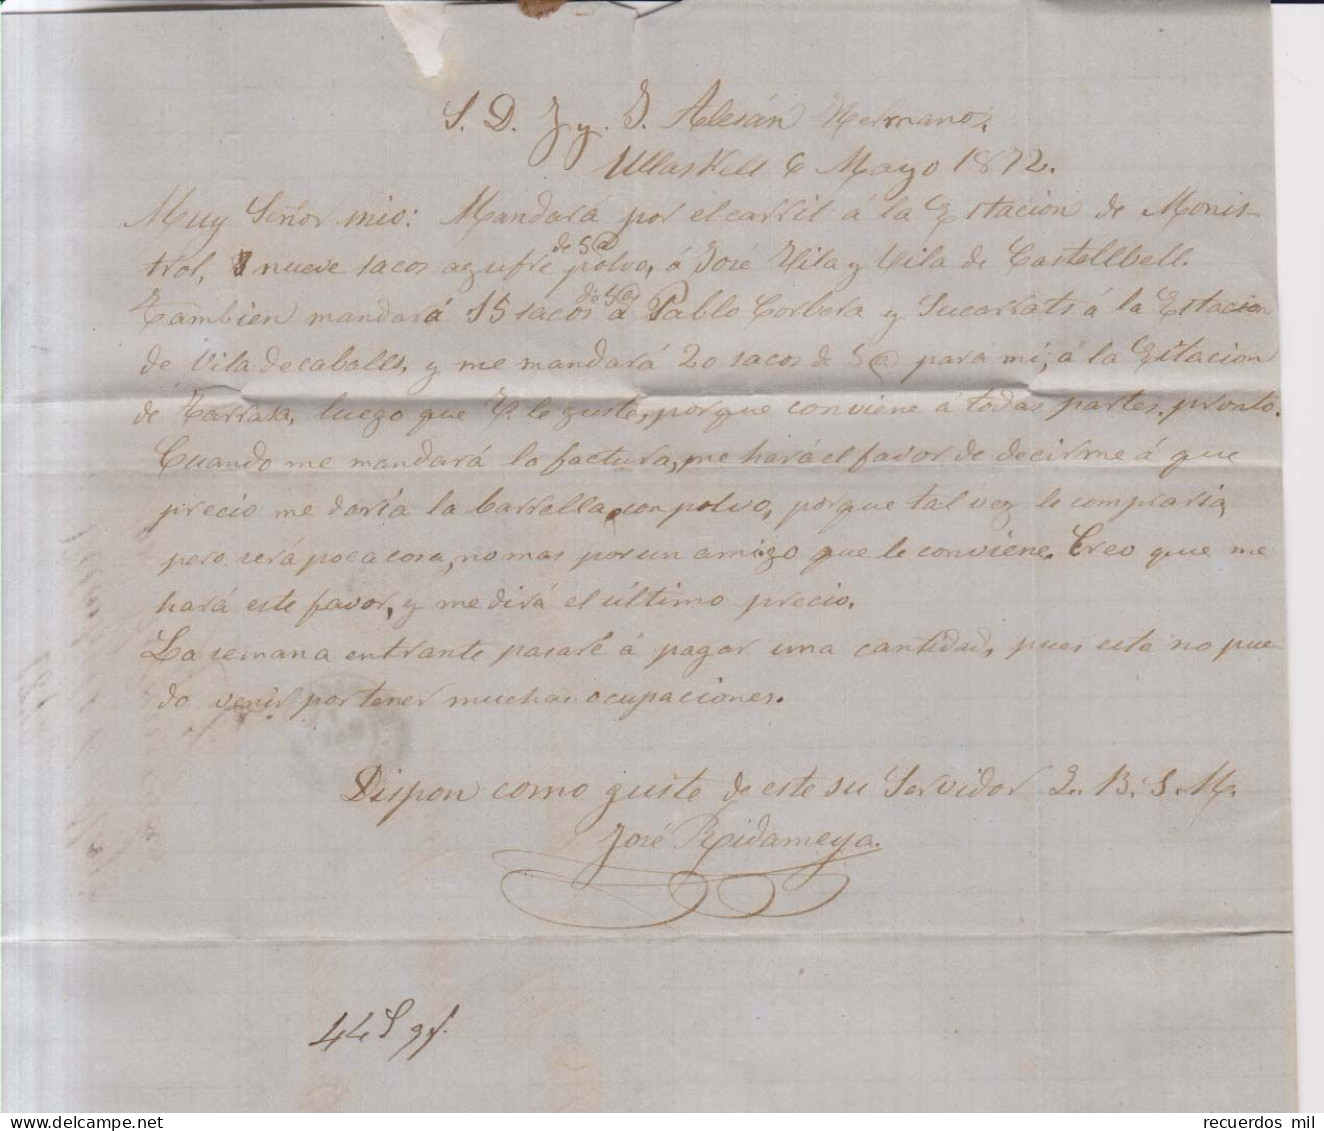 S. D. J. y J. Alesán Hermanos.
Ullastrell 6 Mayo 1872.
Muy Señor mio: Mandará por el carril á la Estacion de Monis-
trol, nueve sacos azufre de 5@ polvo, á José Vila y Vila de Castellbell.
Tambien mandará 15 sacos de 4@ á Pablo Corbera y Sucarrats á la Estacion
de Viladecaballs, y me mandará 20 sacos de 5@ para mi, á la Estacion
de Tarrasa, luego que V. le guste, porque conviene á todas partes pronto.
Cuando me mandará la factura, me hará el favor de decirme á que
precio me daria la barrella con polvo, porque tal vez le compraria,
pero será poca cosa, no mas por un amigo que le conviene. Creo que me
hará este favor, y me dirá el último precio.
La semana entrante pasaré á pagar una cantidad, pues esta no pue-
do venir por tener muchas ocupaciones.
Dispon como guste de este su Servidor Q. B. S. M.
José Ridameya.
44 S
recuerdos mil